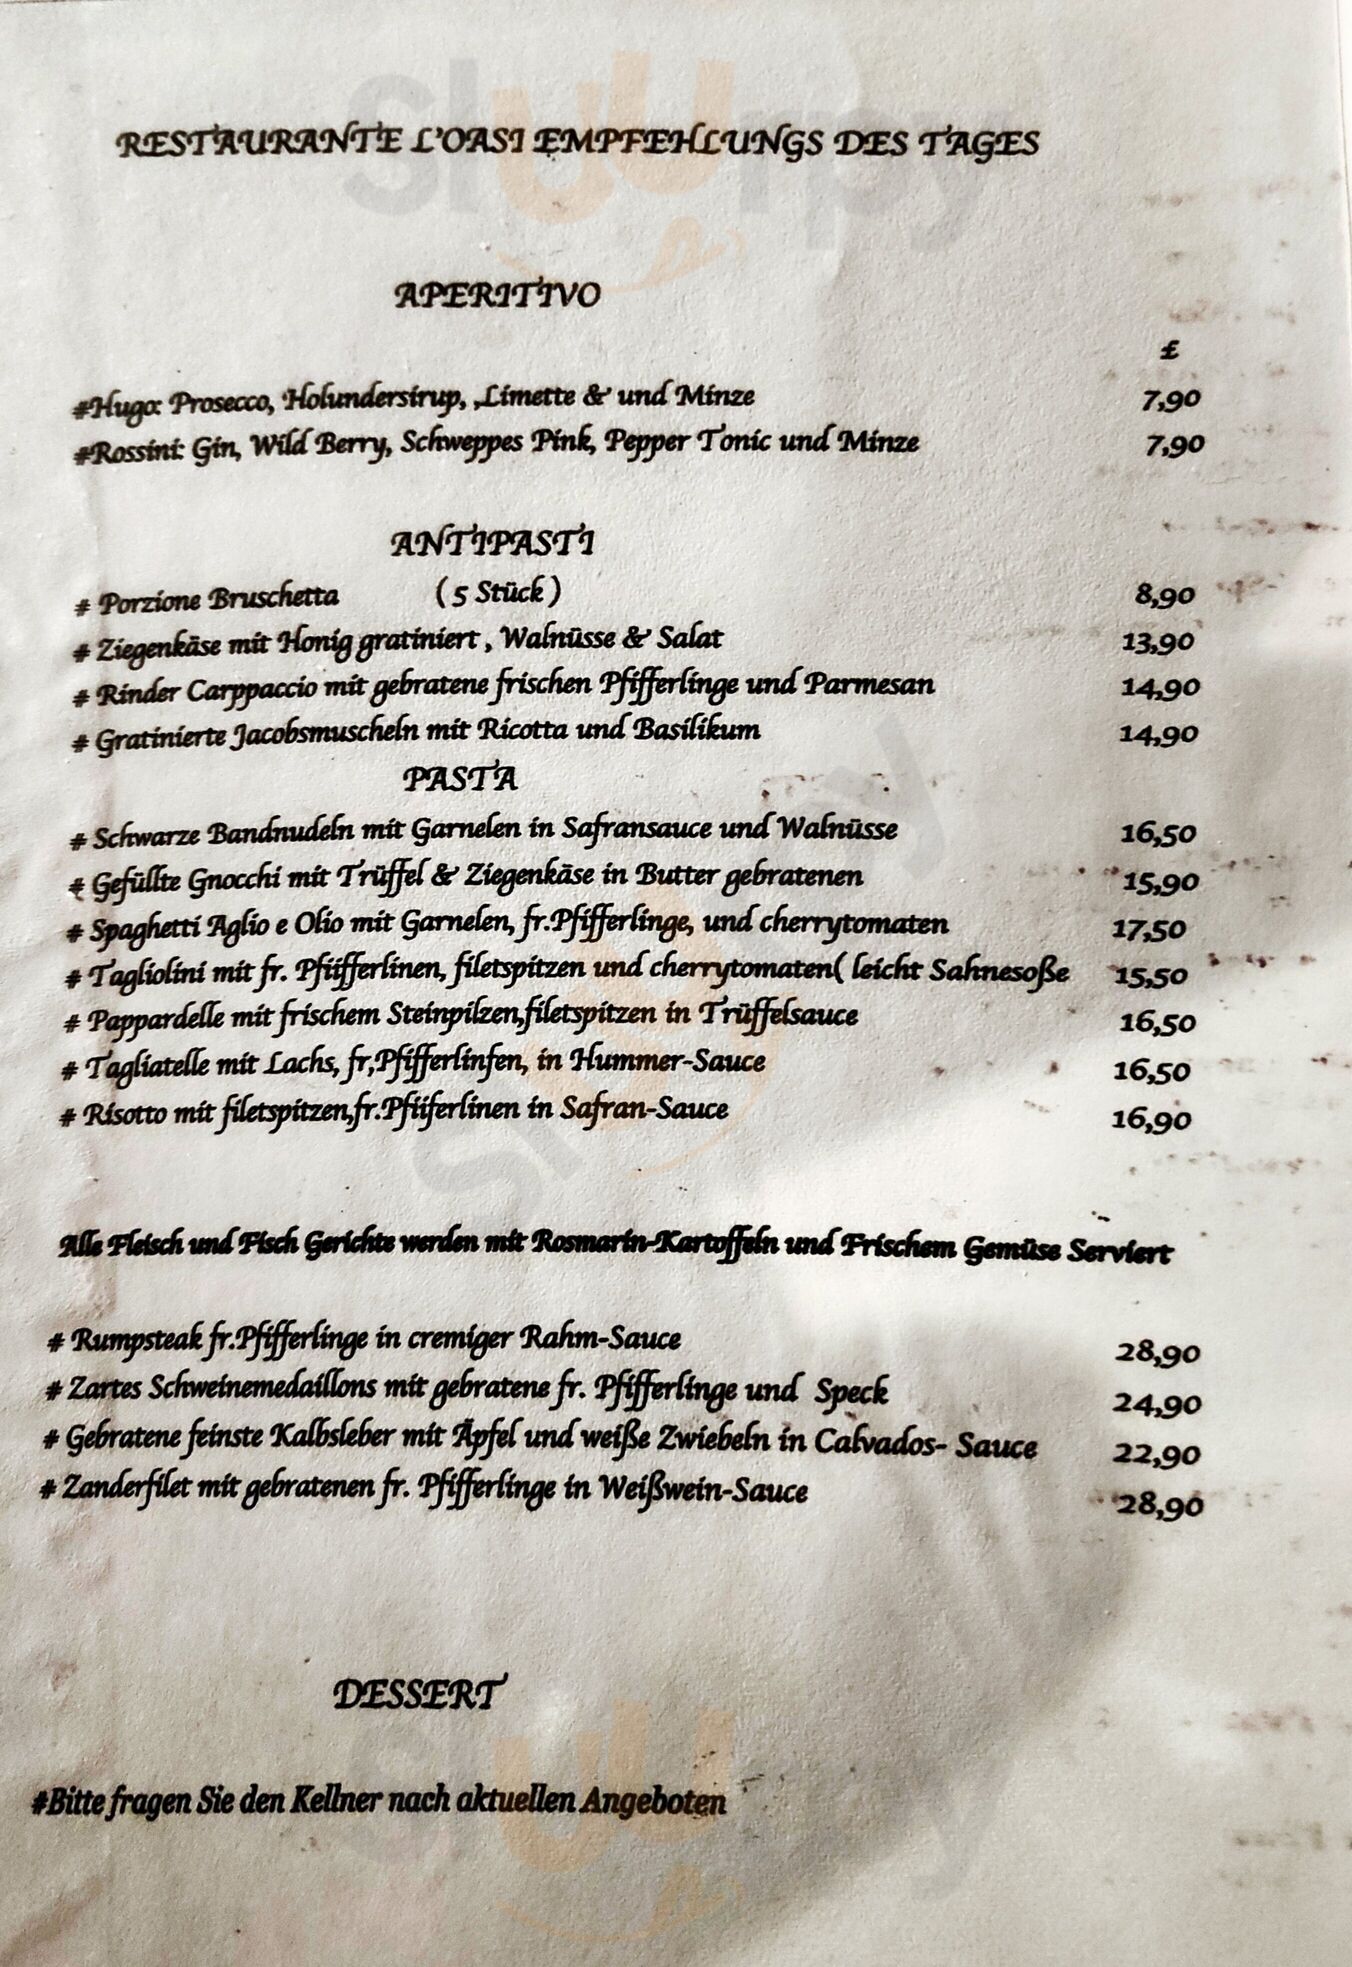 RESTAURANTE L'OASI EMPFEHLUNGS DES TAGES
APERITIVO
£
#Hugo: Prosecco, Holundersirup, ,Limette & und Minze 7,90
#Rossini: Gin, Wild Berry, Schweppes Pink, Pepper Tonic und Minze 7,90
ANTIPASTI
# Porzione Bruschetta ( 5 Stück ) 8,90
# Ziegenkäse mit Honig gratiniert , Walnüsse & Salat 13,90
# Rinder Carppaccio mit gebratene frischen Pfifferlinge und Parmesan 14,90
# Gratinierte Jacobsmuscheln mit Ricotta und Basilikum 14,90
PASTA
# Schwarze Bandnudeln mit Garnelen in Safransauce und Walnüsse 16,50
# Gefüllte Gnocchi mit Trüffel & Ziegenkäse in Butter gebratenen 15,90
# Spaghetti Aglio e Olio mit Garnelen, fr.Pfifferlinge, und cherrytomaten 17,50
# Tagliolini mit fr. Pfiifferlinen, filetspitzen und cherrytomaten( leicht Sahnesoße 15,50
# Pappardelle mit frischem Steinpilzen,filetspitzen in Trüffelsauce 16,50
# Tagliatelle mit Lachs, fr,Pfifferlinfen, in Hummer-Sauce 16,50
# Risotto mit filetspitzen,fr.Pfiiferlinen in Safran-Sauce 16,90
Alle Fleisch und Fisch Gerichte werden mit Rosmarin-Kartoffeln und Frischem Gemüse Serviert
# Rumpsteak fr.Pfifferlinge in cremiger Rahm-Sauce 28,90
# Zartes Schweinemedaillons mit gebratene fr. Pfifferlinge und Speck 24,90
# Gebratene feinste Kalbsleber mit Äpfel und weiße Zwiebeln in Calvados- Sauce 22,90
# Zanderfilet mit gebratenen fr. Pfifferlinge in Weißwein-Sauce 28,90
DESSERT
#Bitte fragen Sie den Kellner nach aktuellen Angeboten